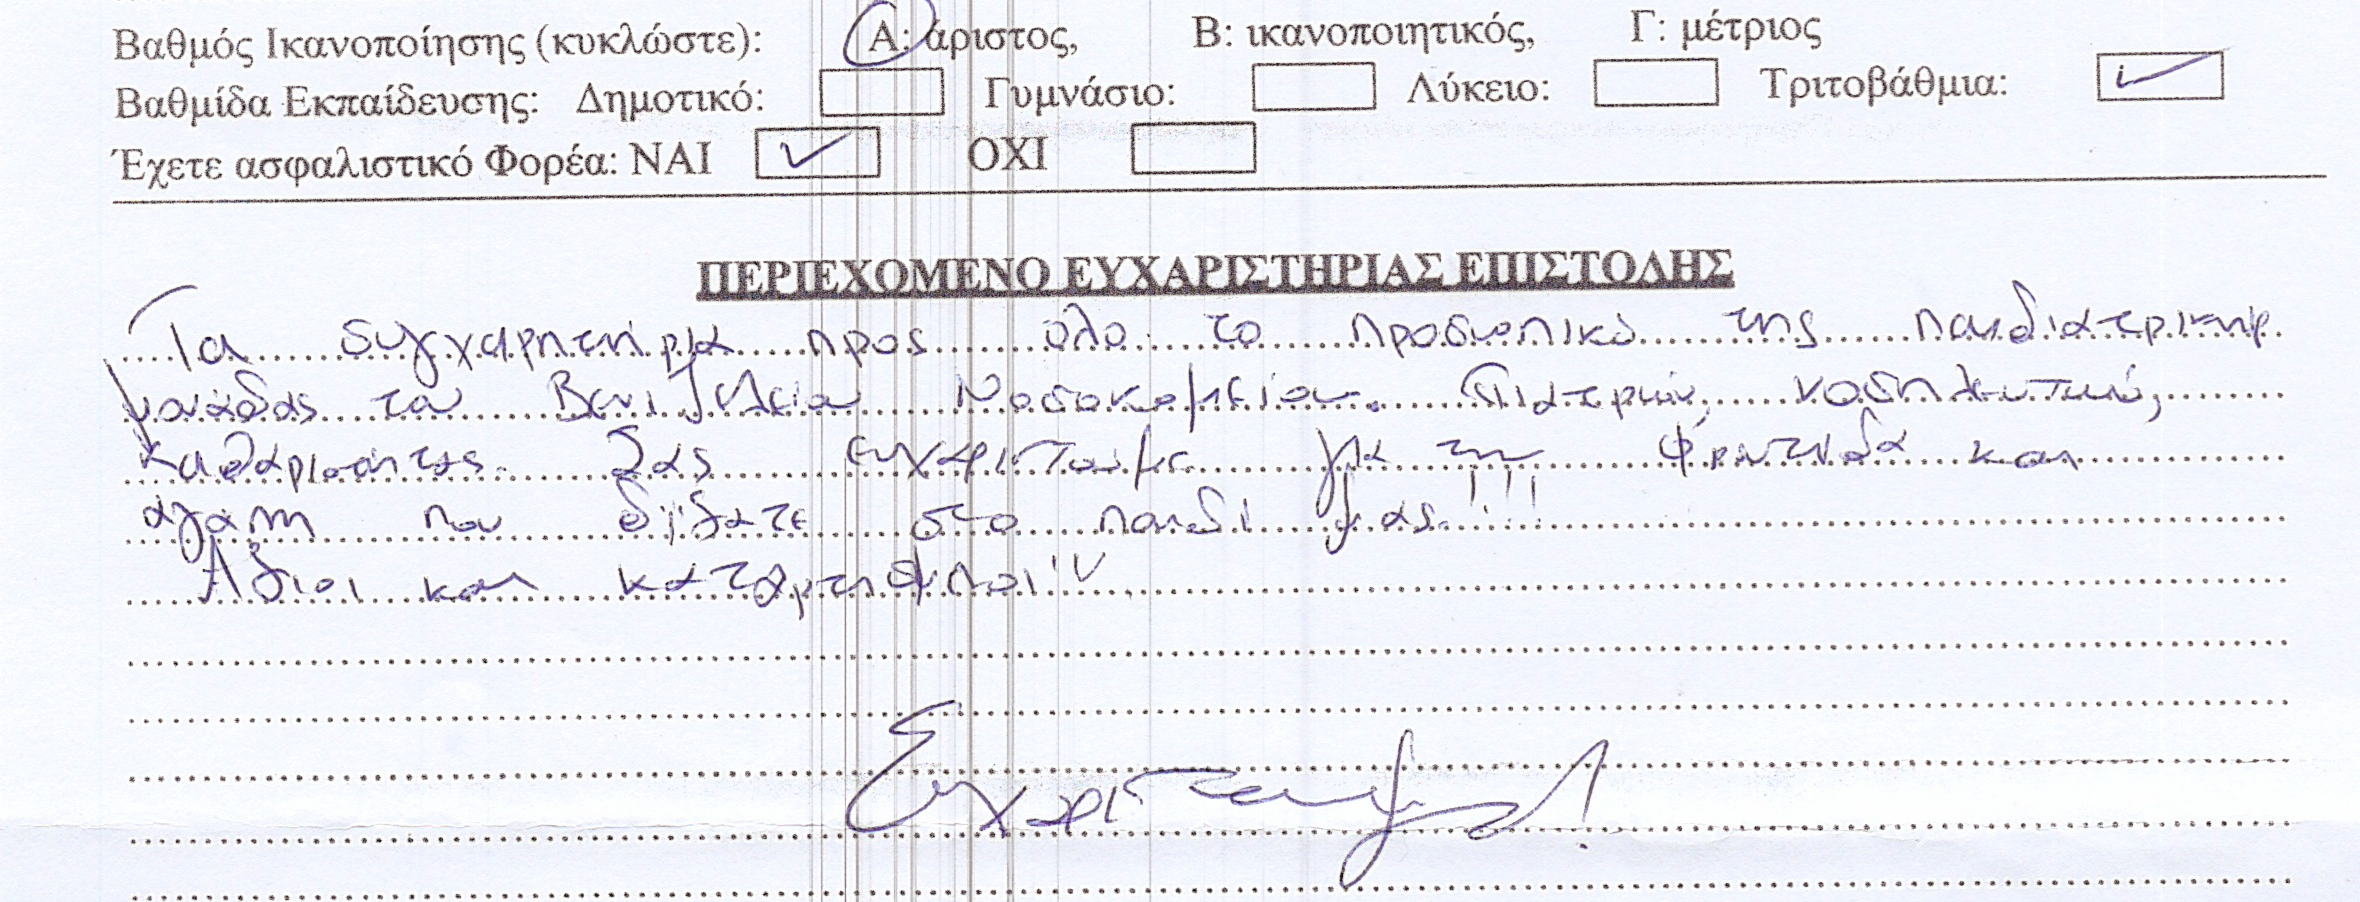 Βαθμός Ικανοποίησης (κυκλώστε): Α: άριστος, Β: ικανοποιητικός, Γ: μέτριος
Βαθμίδα Εκπαίδευσης: Δημοτικό: Γυμνάσιο: Λύκειο: Τριτοβάθμια:
Έχετε ασφαλιστικό Φορέα: ΝΑΙ ΟΧΙ
ΠΕΡΙΕΧΟΜΕΝΟ ΕΥΧΑΡΙΣΤΗΡΙΑΣ ΕΠΙΣΤΟΛΗΣ
Τα συγχαρητήρια προς όλο το προσωπικό της παιδιατρικής
μονάδας του Βενιζελείου Νοσοκομείου. Γιατρών, νοσηλευτικό,
καθαριότητας. Σας ευχαριστούμε για την φροντίδα και
αγάπη που δίξατε στο παιδί μας!!!
Άξιοι και
Ευχαριστούμε!